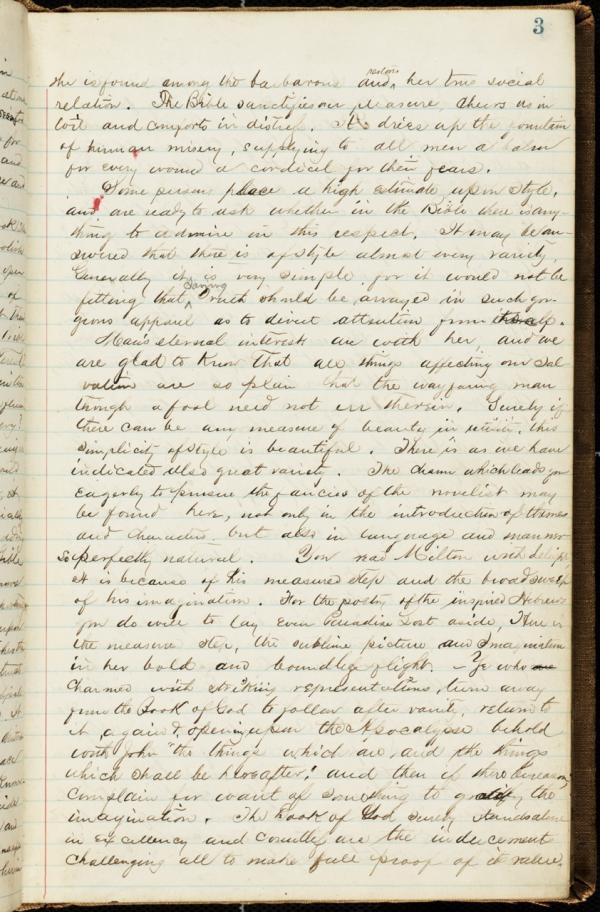 3
she is found among the barbarous and restores her true social
relation. The Bible sanctifies our pleasure, cheers us in
toil and comforts in distress. It dries up the fountain
of human misery, supplying to all men a balm
for every wound a cordical for their fears.
Some persons place a high estimate upon style,
and are ready to ask whether in the Bible there is any-
thing to admire in this respect. It may be an-
swered that there is of style almost every variety.
Generally it is very simple for it would not be
fitting that saving Truth should be arrayed in such gor-
geous apparel as to divert attention from itself.
Man's eternal interests are with her, and we
are glad to know that all things affecting our Sal-
vation are so plain that the wayfaring man
though a fool need not err therein. Surely if
there can be any measure of beauty in this
simplicity of style is beautiful. There is as we have
indicated also great variety. The charm which leads you
eagerly to pursue the fancies of the novelist may
be found here, not only in the introduction of themes
and characters, but also in language and manner
so perfectly natural. You read Milton with delight
it is because of his measured step and the broad sweep
of his imagination. For the poetry of the inspired Hebrews
you do well to lay even Paradise Lost aside, Here is
the measure step, the sublime picture and imagination
in her bold and boundless flight. - Ye who
charmed with striking representations, turn away
from the Book of God to follow after vanity, return to
it again & opening upon the Apocalypse behold
with John "the things which are, and the things
which shall be hereafter," and then if there be reason
complain for want of something to gratify the
imagination. The book of God surely stands alone
in excellency and are the inducement
challenging all to make full proof of its value.